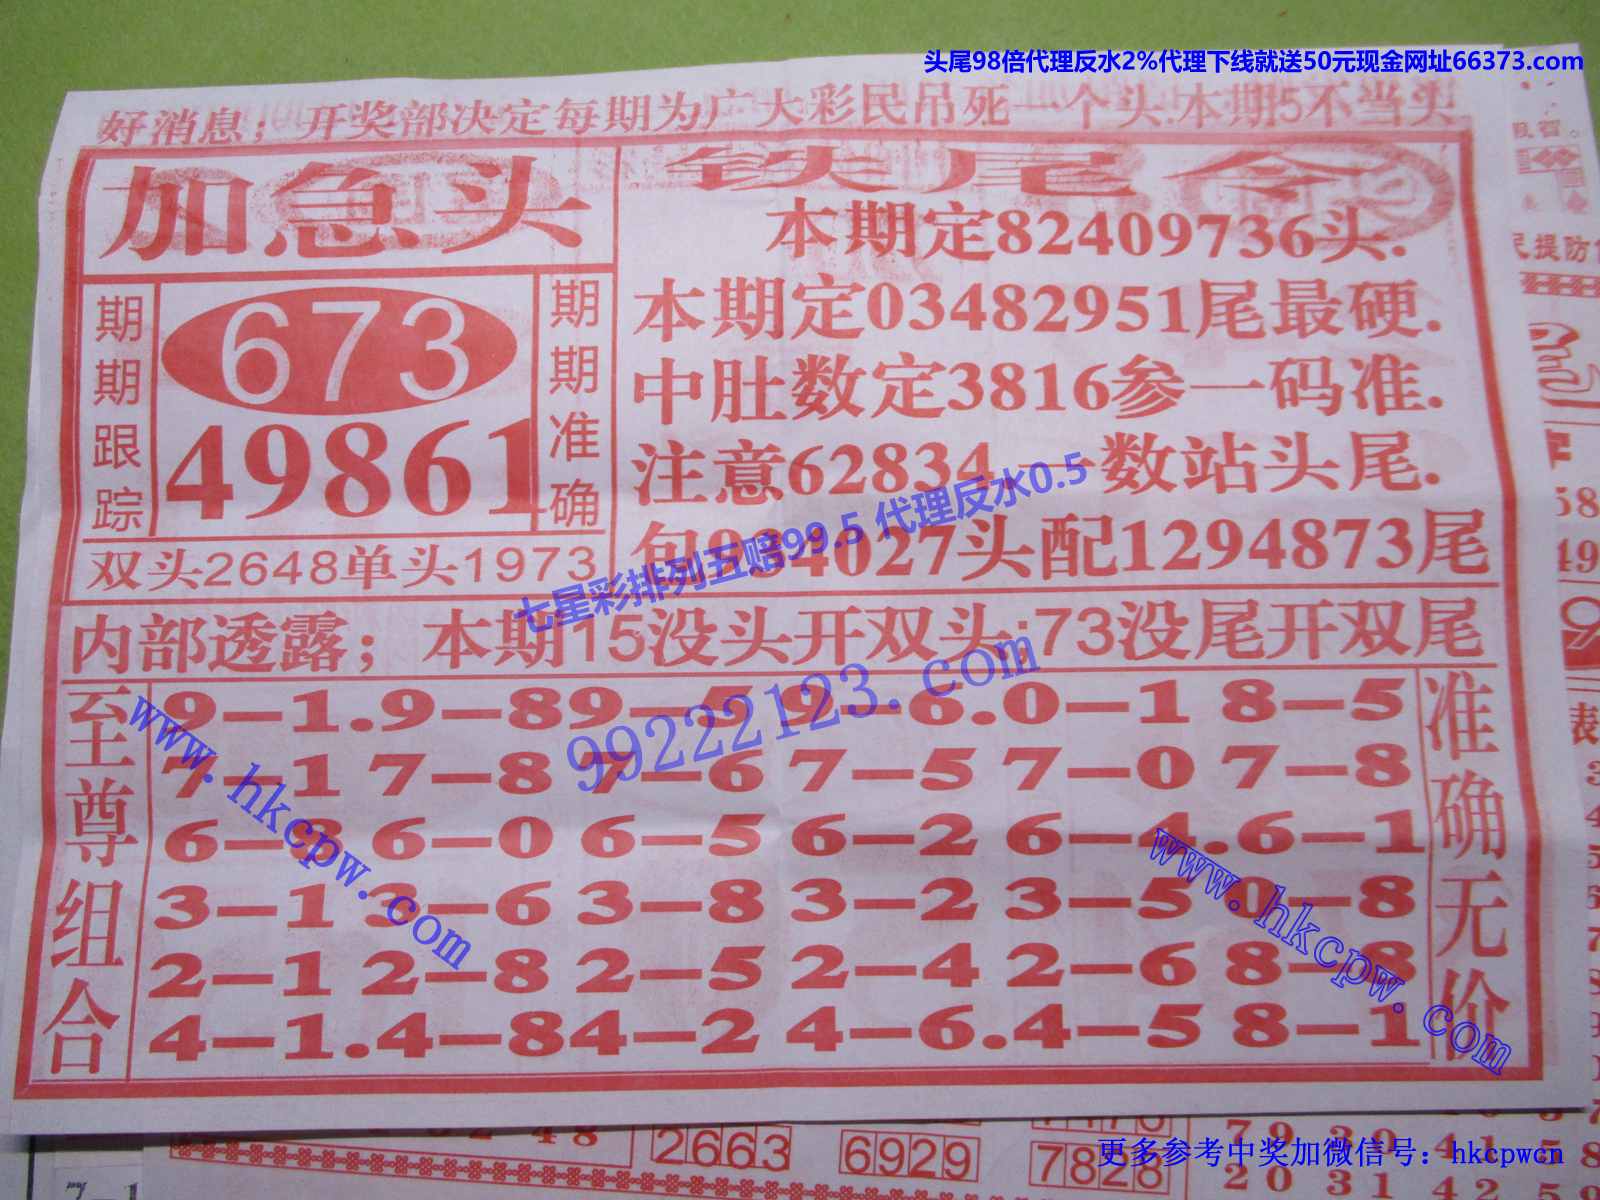 头尾98倍代理反水2%代理下线就送50元现金网址66373.com
好消息；开奖部决定每期为广大彩民吊死一个头.本期5不当头
加急头
铁尾令
期期跟踪
673
49861
期期准确
双头2648单头1973
本期定82409736头.
本期定03482951尾最硬.
中肚数定3816参一码准.
注意62834一数站头尾.
4027头配1294873尾
七星彩排列五赔99.5 代理反水0.5
内部透露；本期15没头开双头;73没尾开双尾
99222123.com
至尊组合
9—1.9—89—5 9—6.0—1 8—5
7—1 7—8 7—6 7—5 7—0 7—8
6—8 6—0 6—5 6—2 6—4.6—1
3—1 3—6 3—8 3—2 3—5 0—8
2—1 2—8 2—5 2—4 2—6 8—8
4—1.4—84—2 4—6.4—5 8—1
准确无价
www.hkcpw.com
www.hkcpw.com
民提防
表
2663
6929
7828
79 30 41
20 31 42
更多参考中奖加微信号：hkcpwcn